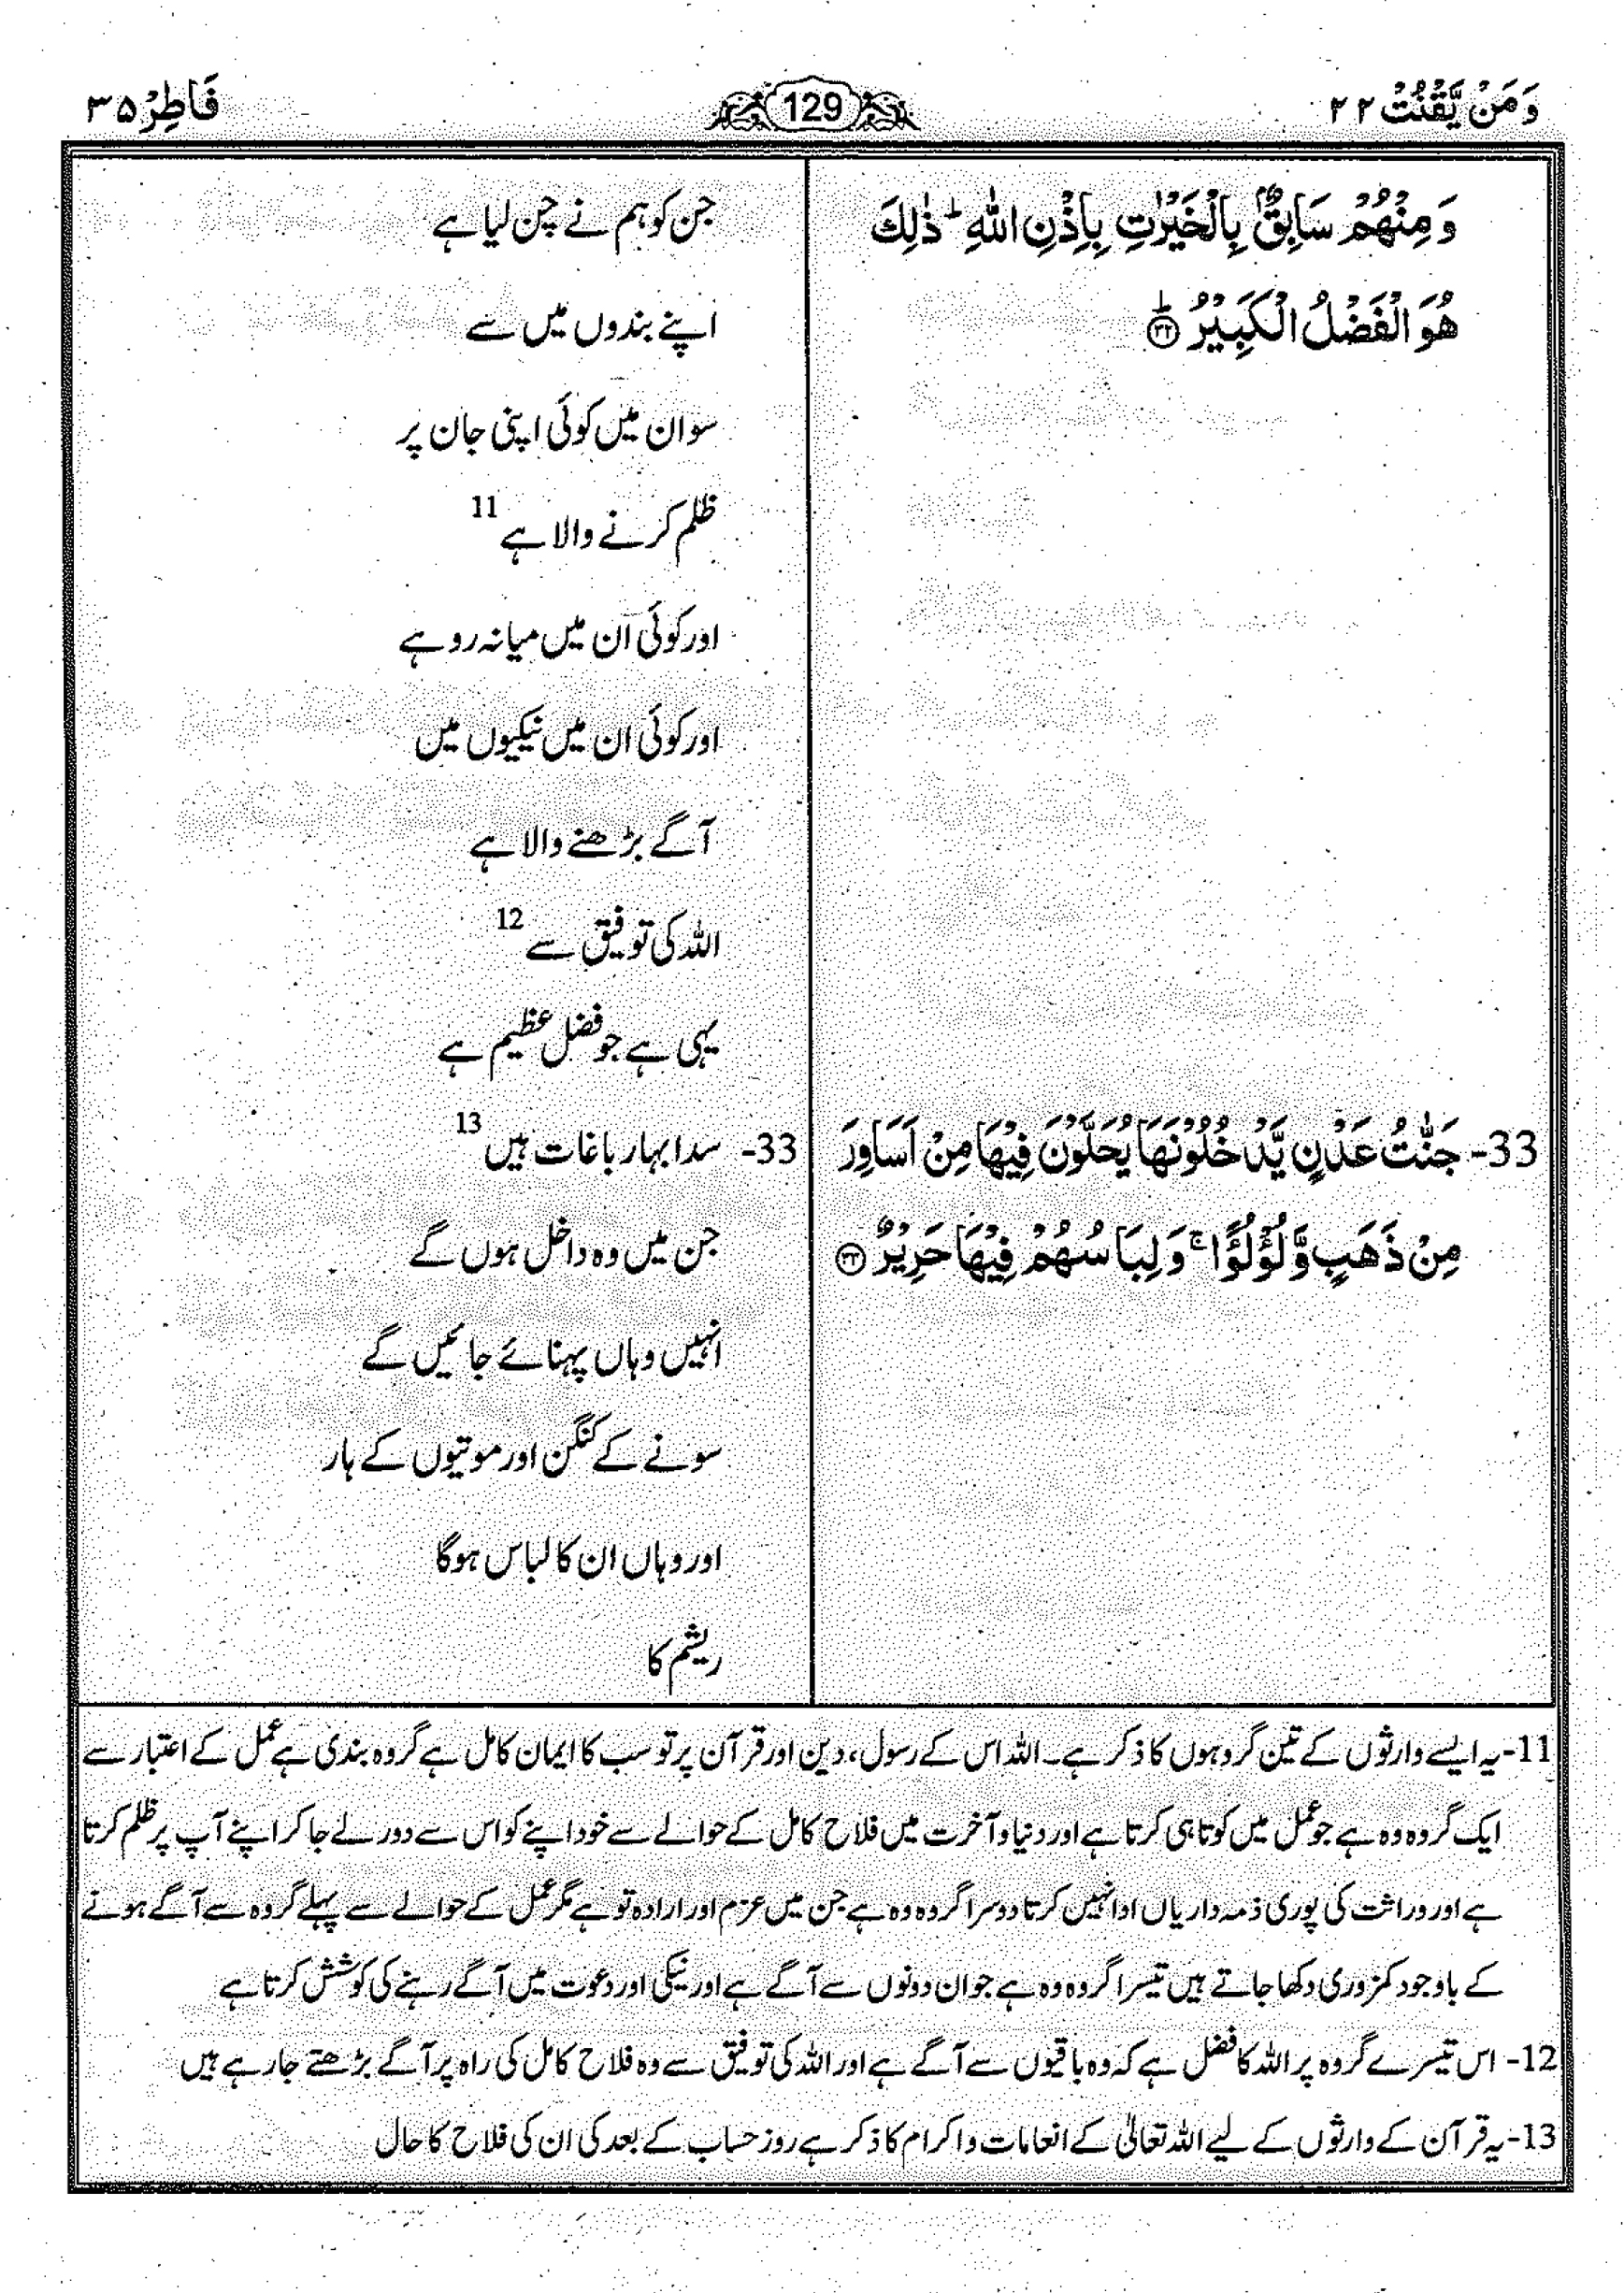 وَمَنْ يَّقْنُتْ ۲۲
129
فَاطِرْ ۳۵
وَمِنْهُمْ سَابِقٌۢ بِالْخَيْرٰتِ بِاِذْنِ اللّٰهِ ؕ ذٰلِكَ
هُوَ الْفَضْلُ الْكَبِيْرُ ؕ ۳۲
جن کو ہم نے چن لیا ہے
اپنے بندوں میں سے
سو ان میں کوئی اپنی جان پر
ظلم کرنے والا ہے 11
اور کوئی ان میں میانہ رو ہے
اور کوئی ان میں نیکیوں میں
آگے بڑھنے والا ہے
اللہ کی توفیق سے 12
یہی ہے جو فضل عظیم ہے
33- جَنّٰتُ عَدْنٍ يَّدْخُلُوْنَهَا يُحَلَّوْنَ فِيْهَا مِنْ اَسَاوِرَ
مِنْ ذَهَبٍ وَّلُؤْلُؤًا ۚ وَلِبَاسُهُمْ فِيْهَا حَرِيْرٌ ۳۳
33- سدا بہار باغات ہیں 13
جن میں وہ داخل ہوں گے
انہیں وہاں پہنائے جائیں گے
سونے کے کنگن اور موتیوں کے ہار
اور وہاں ان کا لباس ہوگا
ریشم کا
11- یہ ایسے وارثوں کے تین گروہوں کا ذکر ہے۔ اللہ اس کے رسول، دین اور قرآن پر تو سب کا ایمان کامل ہے گروہ بندی ہے عمل کے اعتبار سے
ایک گروہ وہ ہے جو عمل میں کوتاہی کرتا ہے اور دنیا و آخرت میں فلاح کامل کے حوالے سے خود اپنے کو اس سے دور لے جا کر اپنے آپ پر ظلم کرتا
ہے اور وراثت کی پوری ذمہ داریاں ادا نہیں کرتا دوسرا گروہ وہ ہے جن میں عزم اور ارادہ تو ہے مگر عمل کے حوالے سے پہلے گروہ سے آگے ہونے
کے باوجود کمزوری دکھا جاتے ہیں تیسرا گروہ وہ ہے جو ان دونوں سے آگے ہے اور نیکی اور دعوت میں آگے رہنے کی کوشش کرتا ہے
12- اس تیسرے گروہ پر اللہ کا فضل ہے کہ وہ باقیوں سے آگے ہے اور اللہ کی توفیق سے وہ فلاح کامل کی راہ پر آگے بڑھتے جا رہے ہیں
13- یہ قرآن کے وارثوں کے لیے اللہ تعالیٰ کے انعامات و اکرام کا ذکر ہے روز حساب کے بعد کی ان کی فلاح کا حال